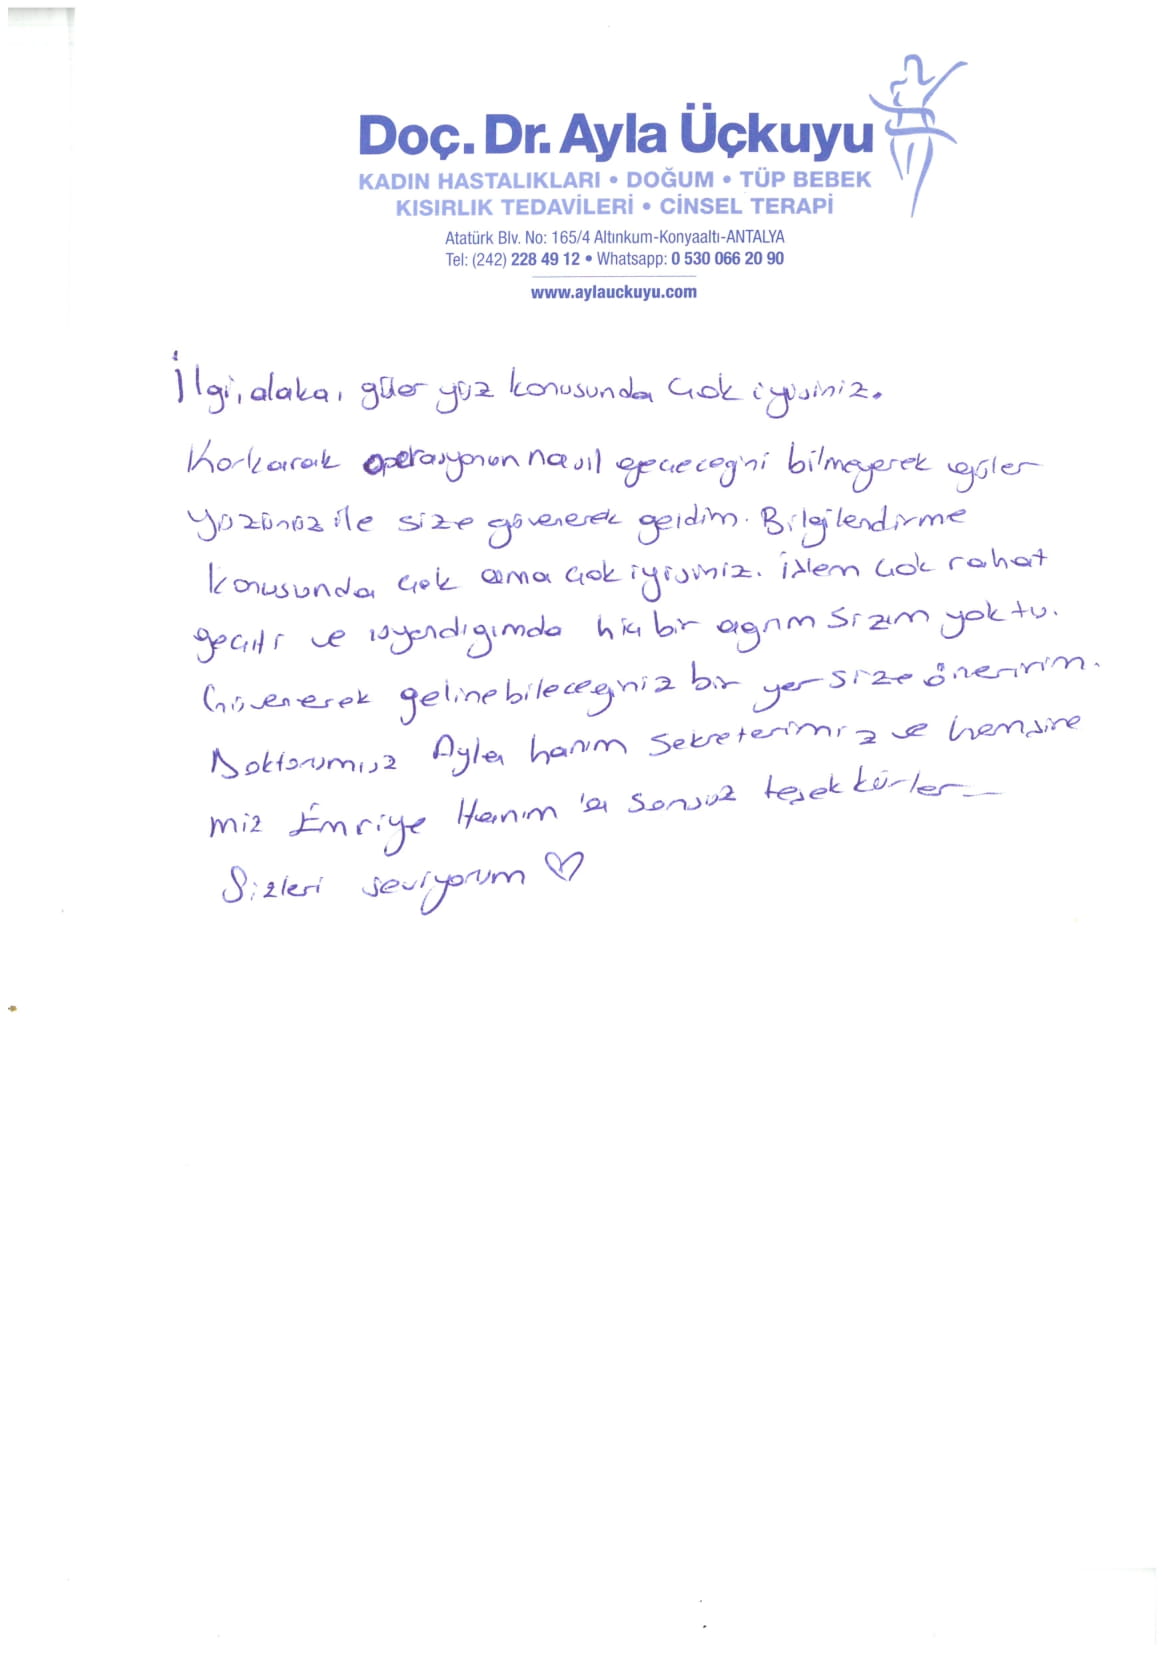 Doç. Dr. Ayla Üçkuyu
KADIN HASTALIKLARI • DOĞUM • TÜP BEBEK
KISIRLIK TEDAVİLERİ • CİNSEL TERAPİ
Atatürk Blv. No: 165/4 Altınkum-Konyaaltı-ANTALYA
Tel: (242) 228 49 12 • Whatsapp: 0 530 066 20 90
www.aylauckuyu.com
İlgi, alaka, güler yüz konusunda çok iyisiniz.
Korkarak operasyonun nasıl geçeceğini bilmeyerek güler
yüzünüz ile size güvenerek geldim. Bilgilendirme
konusunda çok ama çok iyisiniz. işlem çok rahat
geçti ve uyandığımda hiç bir ağrım sızım yoktu.
Güvenerek gelinebileceğiniz bir yer size öneririm.
Doktorumuz Ayla hanım sekreterimiz ve hemşire
miz Emriye Hanım'a sonsuz teşekkürler
Sizleri seviyorum ♡